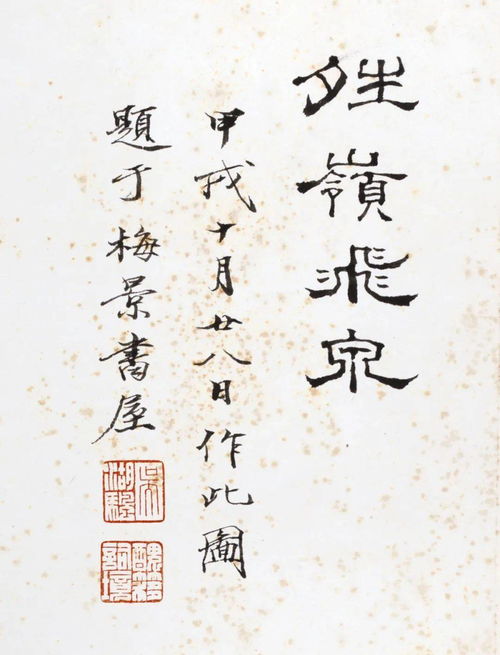 夝嶺飛泉
甲戌十月廿八日作此圖
題于梅景書屋
吳湖颿
醜簃詞境